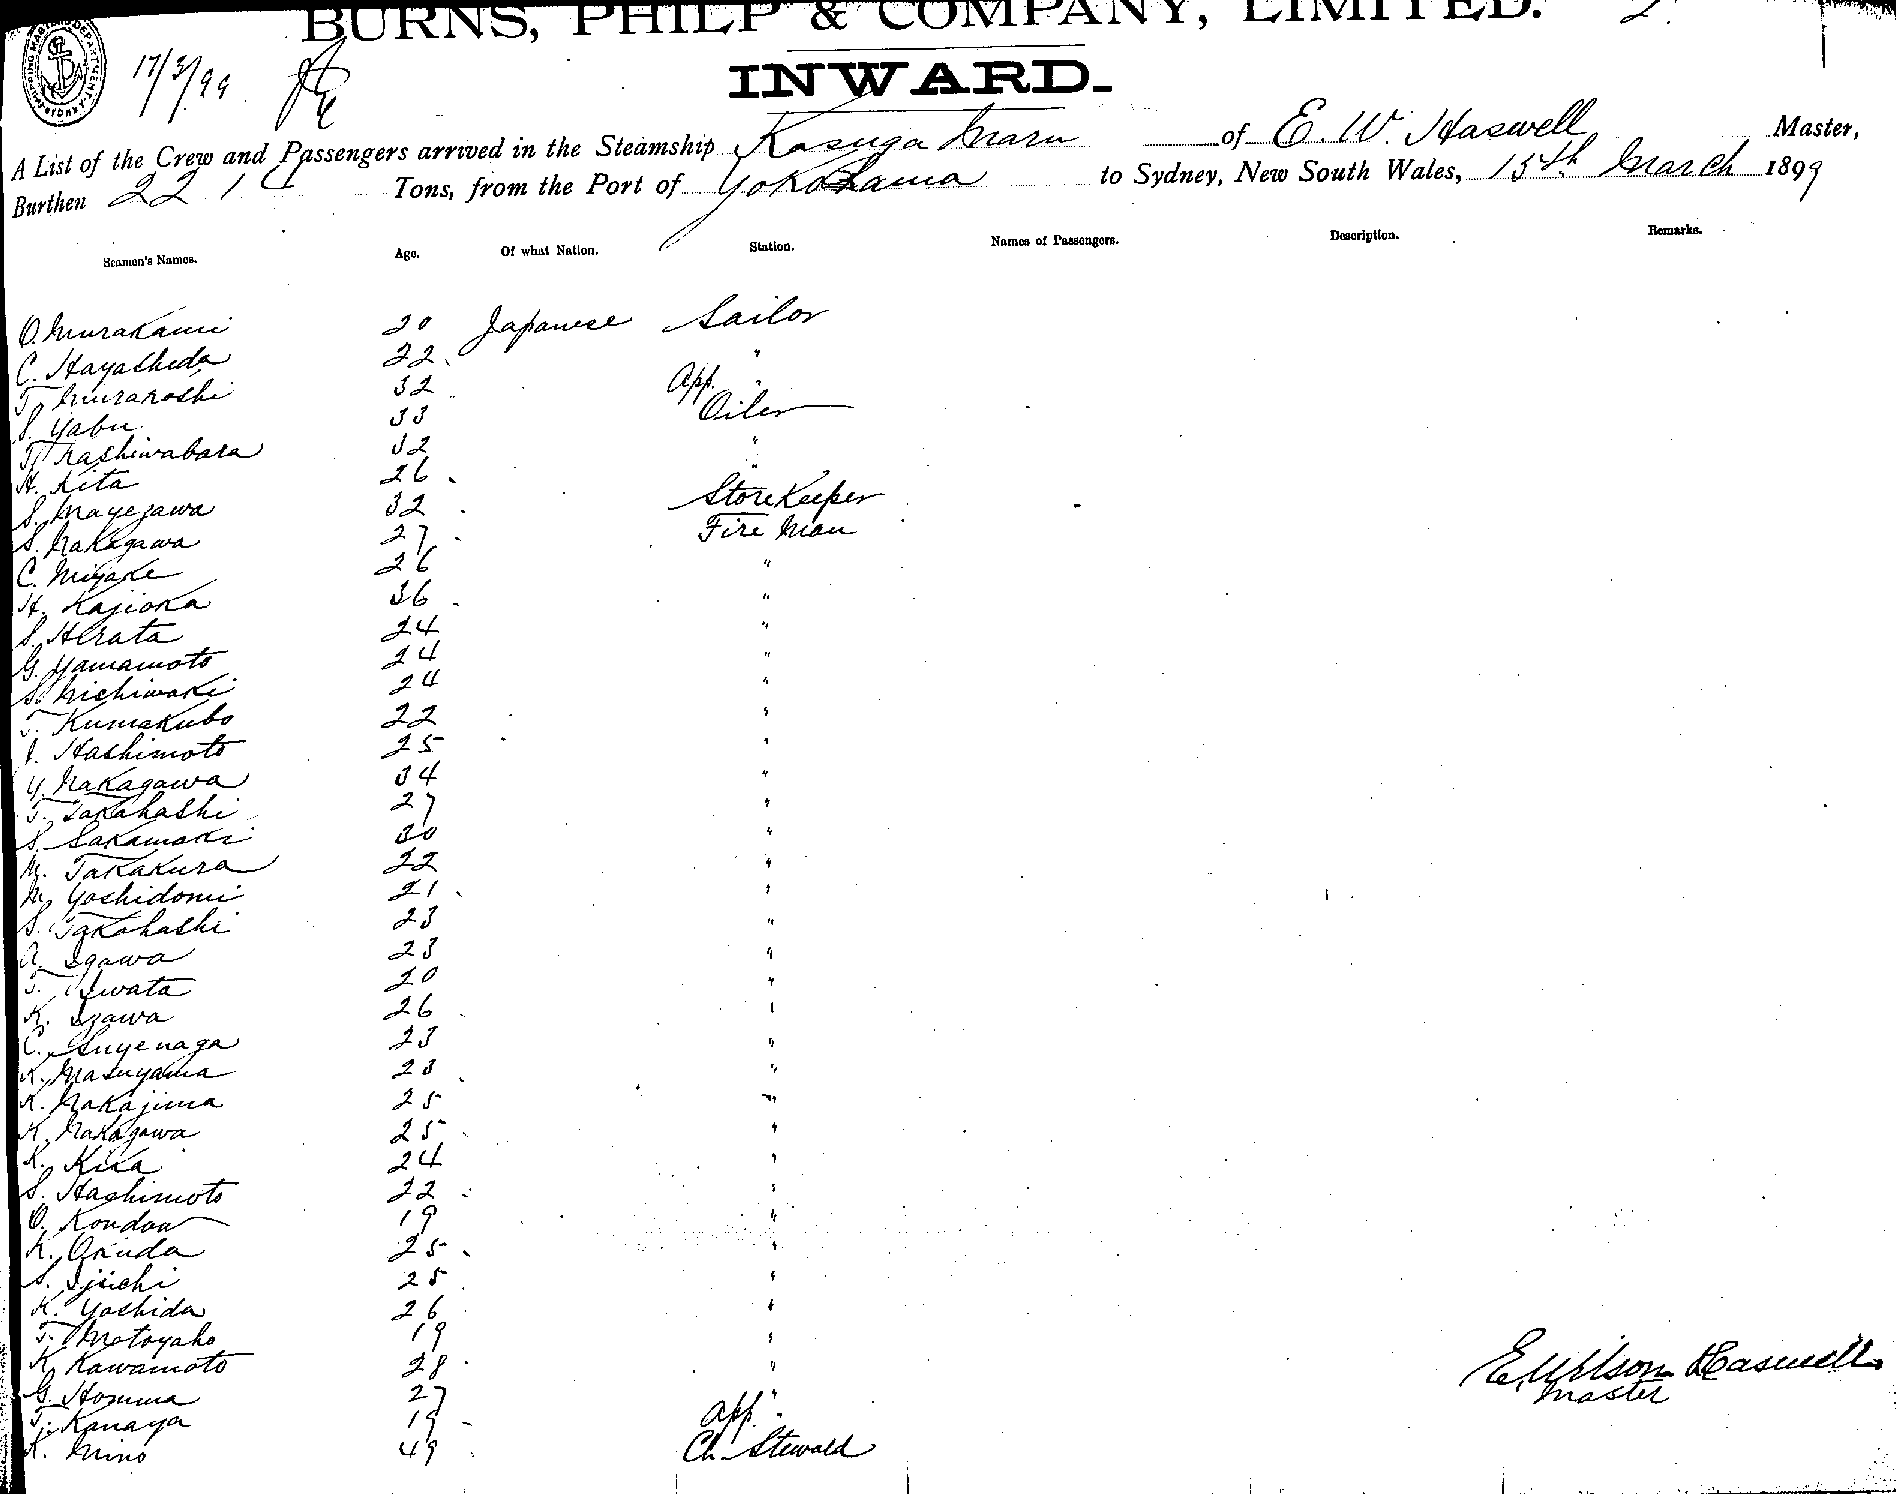 BURNS, PHILP & COMPANY, LIMITED. 2
17/3/99
INWARD.
A List of the Crew and Passengers arrived in the Steamship Kasuga Maru of E. W. Haswell Master,
Burthen 22 1 Tons, from the Port of Yokohama to Sydney, New South Wales, 15th March 1899
Seamen's Names. Age. Of what Nation. Station. Names of Passengers. Description. Remarks.
O. Murakami 20 Japanese Sailor
C. Hayashida 22 "
T. Murakoshi 32 App. "
S. Yabu 33 Oiler
T. Kashiwabara 32 "
H. Kita 26 "
S. Mayezawa 32 StoreKeeper
S. Nakagawa 27 Fire Man
C. Miyake 26 "
H. Kajioka 36 "
S. Hirata 24 "
G. Yamamoto 24 "
S. Nichiwaki 24 "
T. Kumakubo 22 "
I. Hashimoto 25 "
Y. Nakagawa 34 "
T. Takahashi 27 "
S. Sakamaki 30 "
M. Takakura 22 "
M. Yoshidomi 21 "
S. Takahashi 23 "
Igawa 23 "
T. Iwata 20 "
K. Izawa 26 "
C. Suyenaga 23 "
K. Masuyama 23 "
K. Nakajima 25 "
K. Nakagawa 25 "
K. 24 "
S. Hashimoto 22 "
O. Kondaa 19 "
K. Okuda 25 "
S. Ijichi 25 "
K. Yoshida 26 "
T. Motoyaho 19 "
K. Kawamoto 28 "
G. Homma 27 "
T. Kanaya 19 App. "
K. Mino 49 Ch. Steward
E. Wilson Haswell
Master